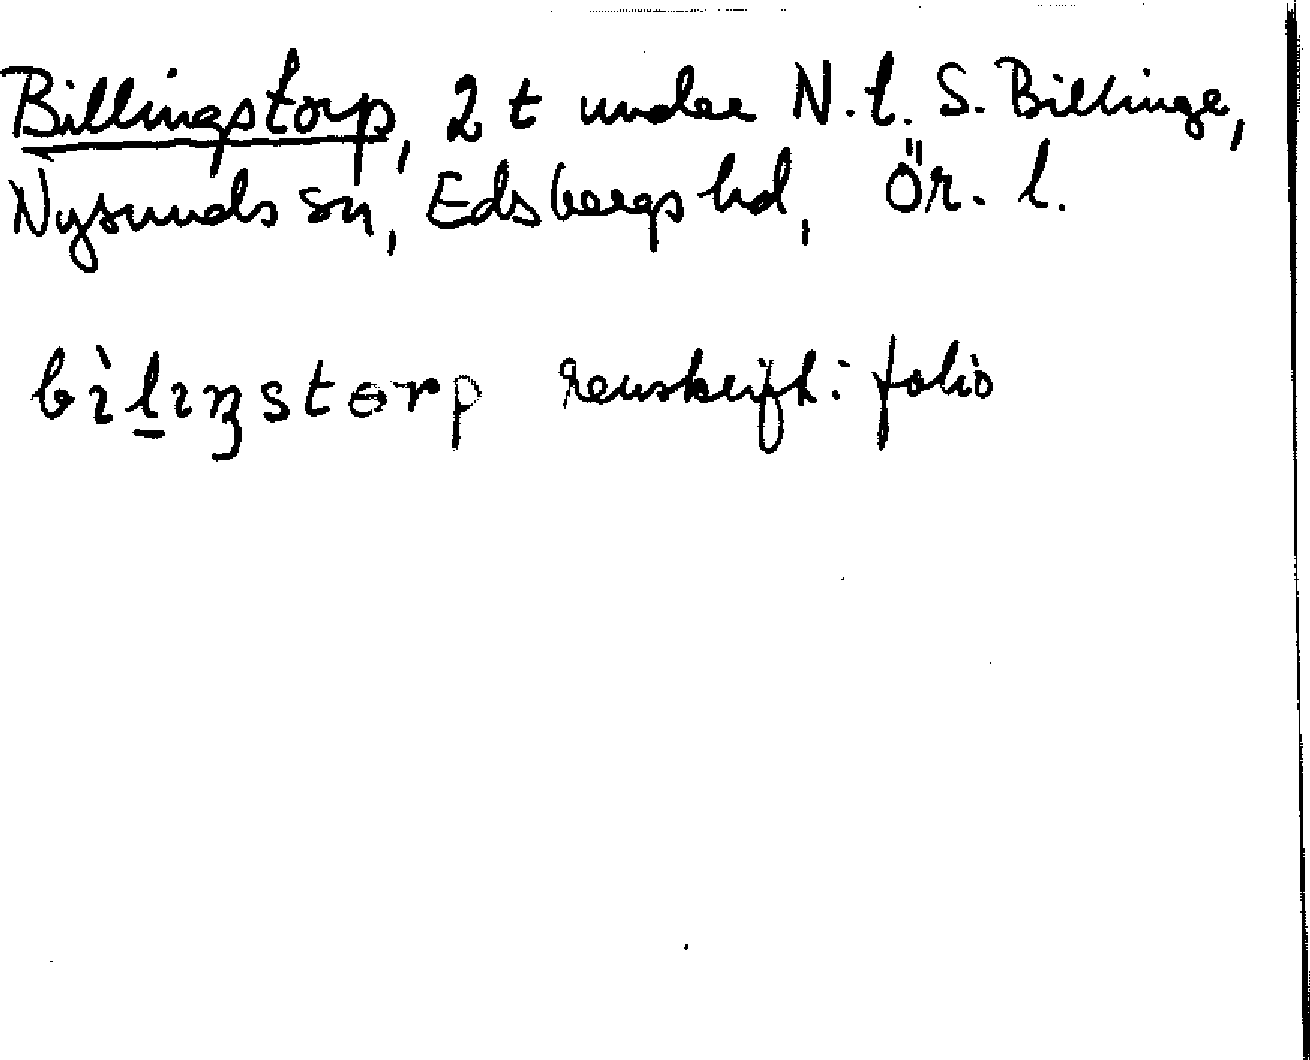 Billingstorp, 2 t under N. t. S. Billinge,
Nysunds sn, Edsbergs hd, Ör. l.
bìlıŋstɵrp renskrift: folio